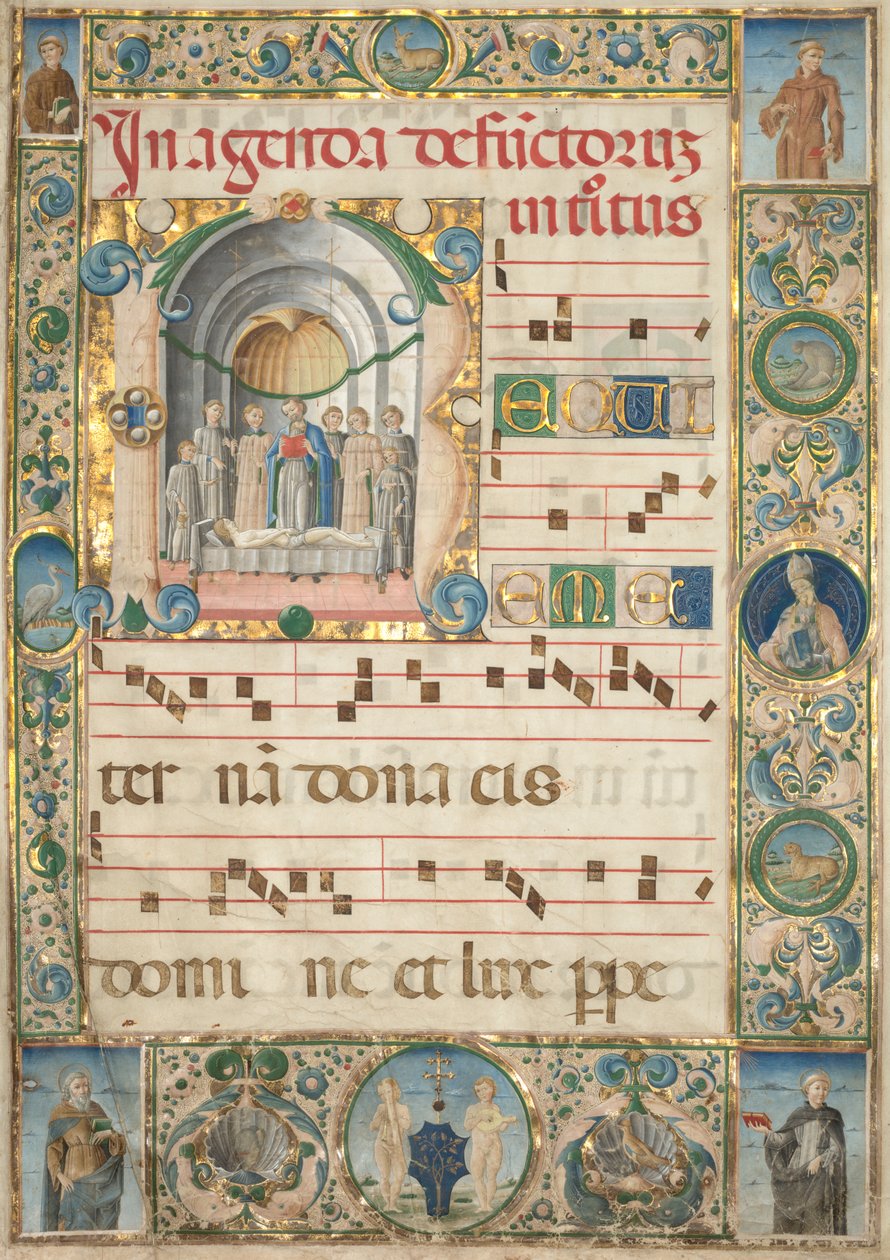 In agenda defūctoruꝫ
intͦitus
R
EQUI
EME
ter nā dona eis
domi ne et lux ꝑpe